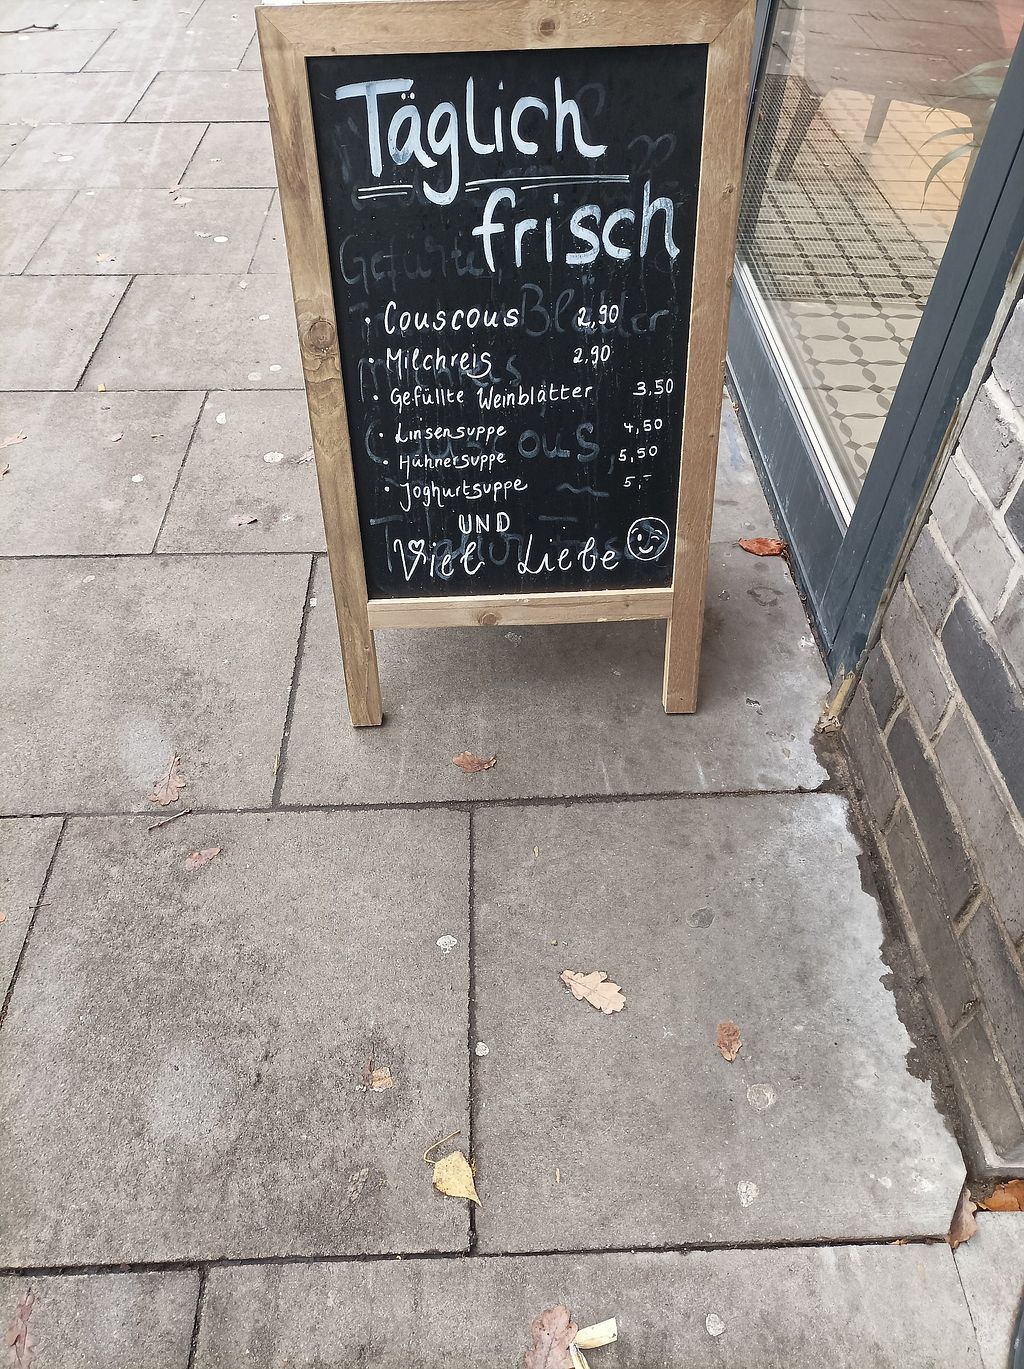 Täglich
frisch
· Couscous 2,90
· Milchreis 2,90
· Gefüllte Weinblätter 3,50
· Linsensuppe 4,50
· Hühnersuppe 5,50
· Joghurtsuppe 5,-
UND
Viel Liebe